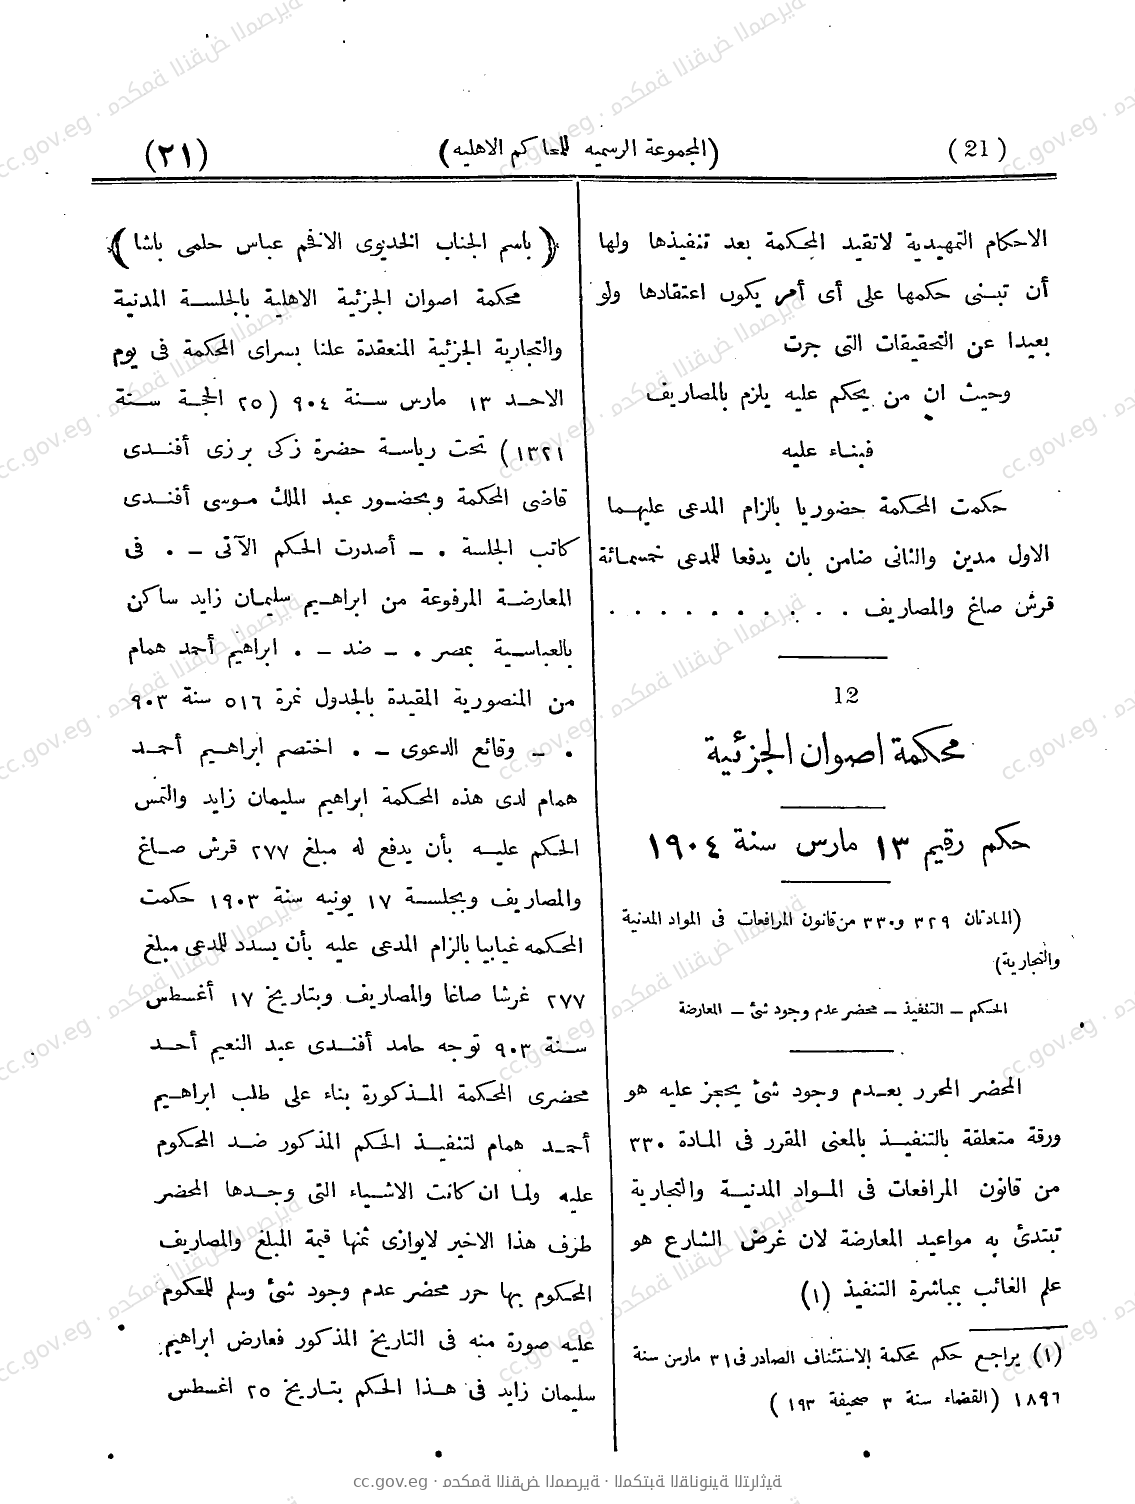 (21) (المجموعة الرسميه للمحاكم الاهليه) (٢١)
الاحكام التمهيدية لاتقيد المحكمة بعد تنفيذها ولها
أن تبنى حكمها على أى أمر يكون اعتقادها ولو
بعيدا عن التحقيقات التى جرت
وحيث ان من يحكم عليه يلزم بالمصاريف
فبناء عليه
حكمت المحكمة حضوريا بالزام المدعى عليهما
الاول مدين والثانى ضامن بان يدفعا للمدعى خمسمائة
قرش صاغ والمصاريف . . . . . . . . . .
12
محكمة اصوان الجزئية
حكم رقيم ١٣ مارس سنة ١٩٠٤
(المادتان ٣٢٩ و٣٣٠ من قانون المرافعات فى المواد المدنية
والتجارية)
الحكم – التنفيذ – محضر عدم وجود شئ – المعارضة
المحضر المحرر بعدم وجود شئ يحجز عليه هو
ورقة متعلقة بالتنفيذ بالمعنى المقرر فى المادة ٣٣٠
من قانون المرافعات فى المواد المدنية والتجارية
تبتدئ به مواعيد المعارضة لان غرض الشارع هو
علم الغائب بمباشرة التنفيذ (١)
(١) يراجع حكم محكمة الاستئناف الصادر فى ٣١ مارس سنة
١٨٩٦ (القضاء سنة ٣ صحيفة ١٩٣)
﴿باسم الجناب الخديوى الافخم عباس حلمى باشا﴾
محكمة اصوان الجزئية الاهلية بالجلسة المدنية
والتجارية الجزئية المنعقدة علنا بسراى المحكمة فى يوم
الاحد ١٣ مارس سنة ٩٠٤ (٢٥ الحجة سنة
١٣٢١) تحت رياسة حضرة زكى برزى أفندى
قاضى المحكمة وبحضور عبد الملك موسى أفندى
كاتب الجلسة . – أصدرت الحكم الآتى – . فى
المعارضة المرفوعة من ابراهيم سليمان زايد ساكن
بالعباسية بمصر . – ضد – . ابراهيم أحمد همام
من المنصورية المقيدة بالجدول نمرة ٥١٦ سنة ٩٠٣
. – وقائع الدعوى – . اختصم ابراهيم أحمد
همام لدى هذه المحكمة ابراهيم سليمان زايد والتمس
الحكم عليه بأن يدفع له مبلغ ٢٧٧ قرش صاغ
والمصاريف وبجلسة ١٧ يونيه سنة ١٩٠٣ حكمت
المحكمه غيابيا بالزام المدعى عليه بأن يسدد للمدعى مبلغ
٢٧٧ غرشا صاغا والمصاريف وبتاريخ ١٧ أغسطس
سنة ٩٠٣ توجه حامد أفندى عبد النعيم أحد
محضرى المحكمة المذكورة بناء على طلب ابراهيم
أحمد همام لتنفيذ الحكم المذكور ضد المحكوم
عليه ولما ان كانت الاشياء التى وجدها المحضر
طرف هذا الاخير لايوازى ثمنها قيمة المبلغ والمصاريف
المحكوم بها حرر محضر عدم وجود شئ وسلم للمحكوم
عليه صورة منه فى التاريخ المذكور فعارض ابراهيم
سليمان زايد فى هذا الحكم بتاريخ ٢٥ اغسطس
cc.gov.eg · محكمة النقض المصرية · المكتبة القانونية التراثية